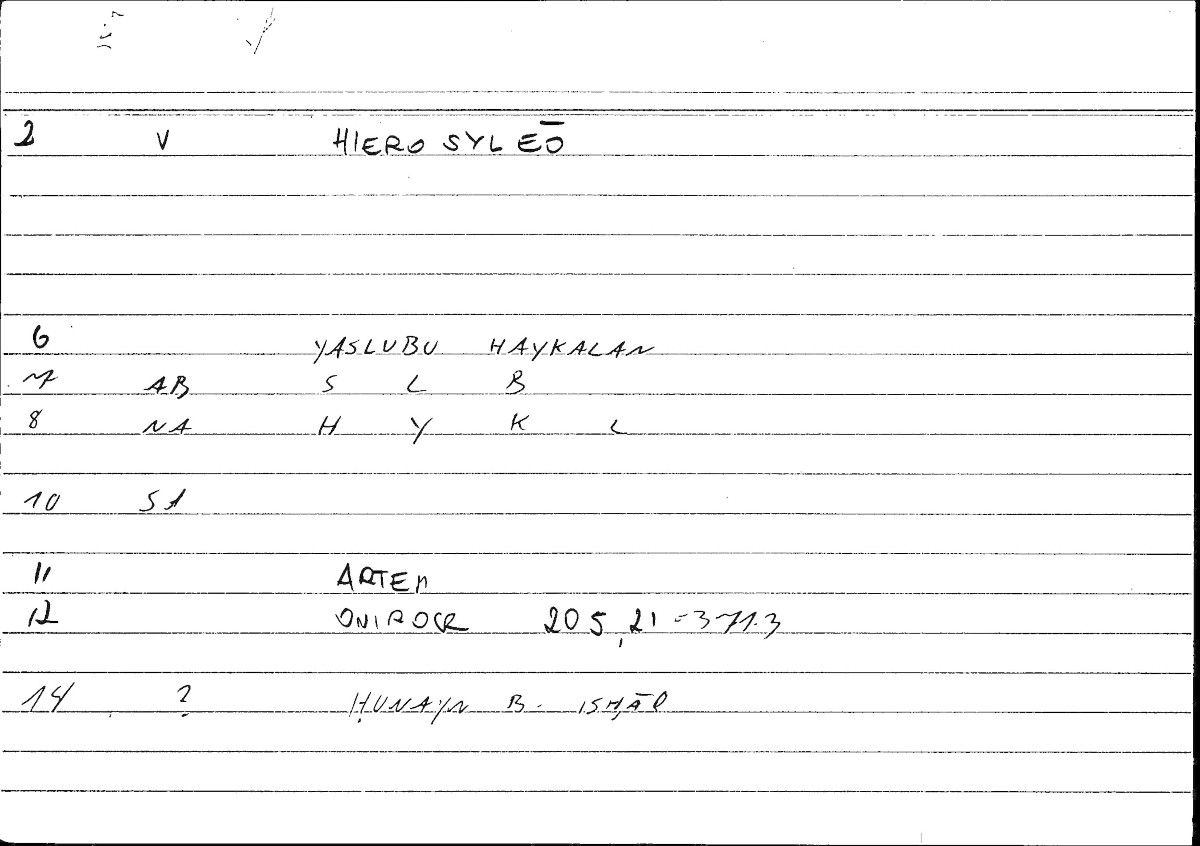 2 V HIERO SYL EŌ
6 YASLUBU HAYKALAN
7 AB S L B
8 NA H Y K L
10 SA
11 ARTEM
12 ONIROCR 205,21 = 371.3
14 ? ḤUNAYN B. ISḤĀQ